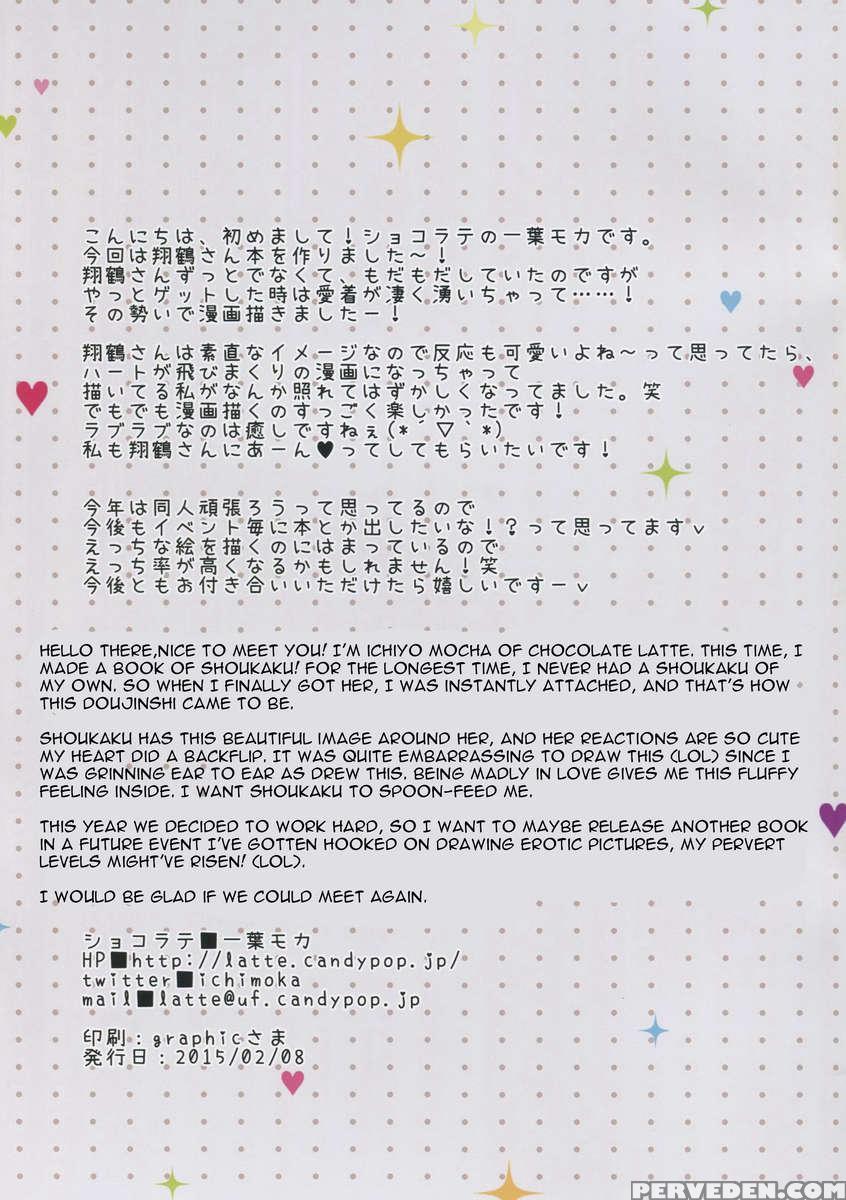 こんにちは、初めまして!ショコラテの一葉モカです。
今回は翔鶴さん本を作りました～!
翔鶴さんずっとでなくて、もだもだしていたのですが
やっとゲットした時は愛着が凄く湧いちゃって……!
その勢いで漫画描きましたー!
翔鶴さんは素直なイメージなので反応も可愛いよね～って思ってたら、
ハートが飛びまくりの漫画になっちゃって
描いてる私がなんか照れてはずかしくなってました。笑
でもでも漫画描くのすっごく楽しかったです!
ラブラブなのは癒しですねぇ(*´▽`*)
私も翔鶴さんにあーん♥ってしてもらいたいです!
今年は同人頑張ろうって思ってるので
今後もイベント毎に本とか出したいな!?って思ってますv
えっちな絵を描くのにはまっているので
えっち率が高くなるかもしれません!笑
今後ともお付き合いいただけたら嬉しいですーv
HELLO THERE,NICE TO MEET YOU! I'M ICHIYO MOCHA OF CHOCOLATE LATTE. THIS TIME, I
MADE A BOOK OF SHOUKAKU! FOR THE LONGEST TIME, I NEVER HAD A SHOUKAKU OF
MY OWN. SO WHEN I FINALLY GOT HER, I WAS INSTANTLY ATTACHED, AND THAT'S HOW
THIS DOUJINSHI CAME TO BE.
SHOUKAKU HAS THIS BEAUTIFUL IMAGE AROUND HER, AND HER REACTIONS ARE SO CUTE
MY HEART DID A BACKFLIP. IT WAS QUITE EMBARRASSING TO DRAW THIS (LOL) SINCE I
WAS GRINNING EAR TO EAR AS DREW THIS. BEING MADLY IN LOVE GIVES ME THIS FLUFFY
FEELING INSIDE. I WANT SHOUKAKU TO SPOON-FEED ME.
THIS YEAR WE DECIDED TO WORK HARD, SO I WANT TO MAYBE RELEASE ANOTHER BOOK
IN A FUTURE EVENT I'VE GOTTEN HOOKED ON DRAWING EROTIC PICTURES, MY PERVERT
LEVELS MIGHT'VE RISEN! (LOL).
I WOULD BE GLAD IF WE COULD MEET AGAIN.
ショコラテ■一葉モカ
HP■http://latte.candypop.jp/
twitter■ichimoka
mail■latte@uf.candypop.jp
印刷：graphicさま
発行日：2015/02/08
PERVEDEN.COM